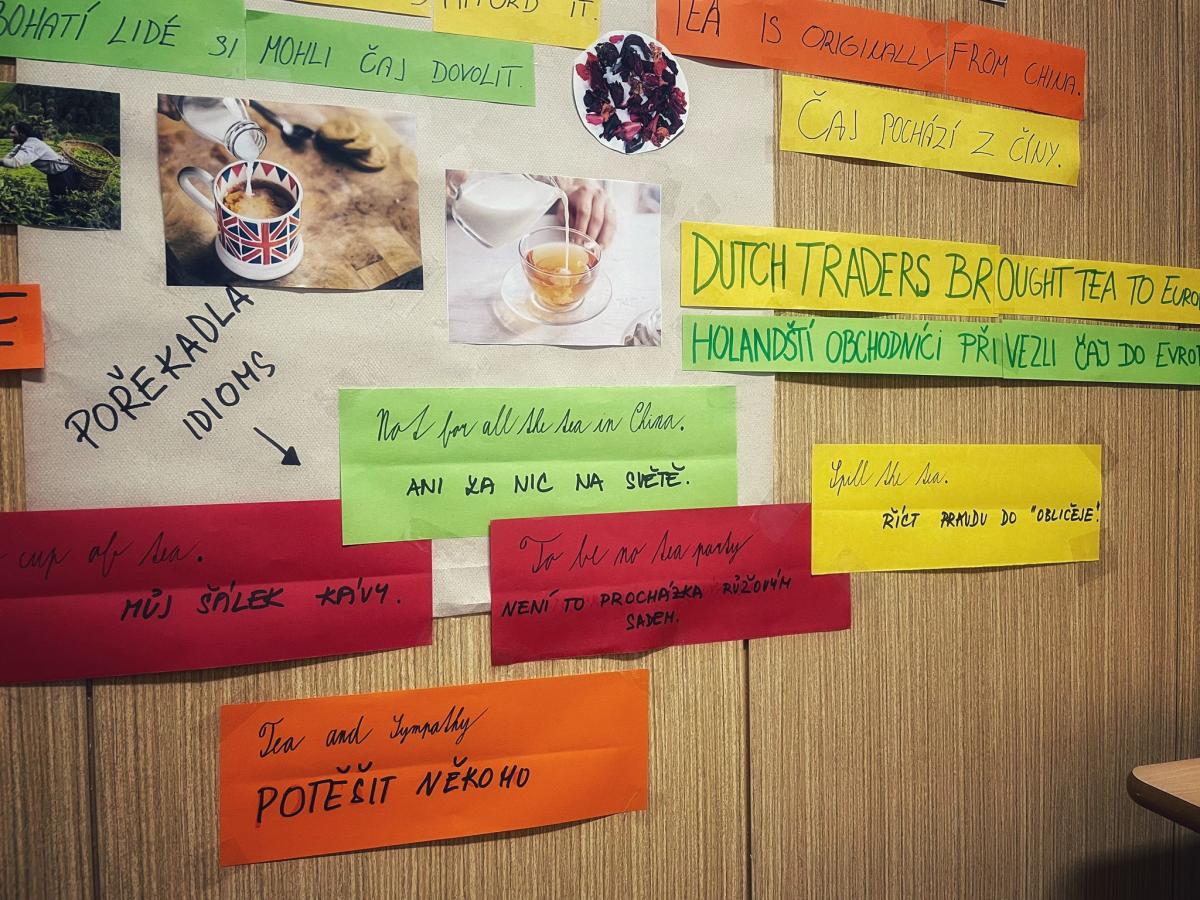 AFFORD IT.
BOHATÍ LIDÉ SI MOHLI ČAJ DOVOLIT.
TEA IS ORIGINALLY FROM CHINA.
ČAJ POCHÁZÍ Z ČÍNY.
DUTCH TRADERS BROUGHT TEA TO EURO
HOLANDŠTÍ OBCHODNÍCI PŘIVEZLI ČAJ DO EVROP
POŘEKADLA
IDIOMS
Not for all the tea in China.
ANI ZA NIC NA SVĚTĚ.
Spill the tea.
ŘÍCT PRAVDU DO "OBLIČEJE".
cup of tea.
MŮJ ŠÁLEK KÁVY.
To be no tea party
NENÍ TO PROCHÁZKA RŮŽOVÝM
SADEM.
Tea and Sympathy
POTĚŠIT NĚKOHO